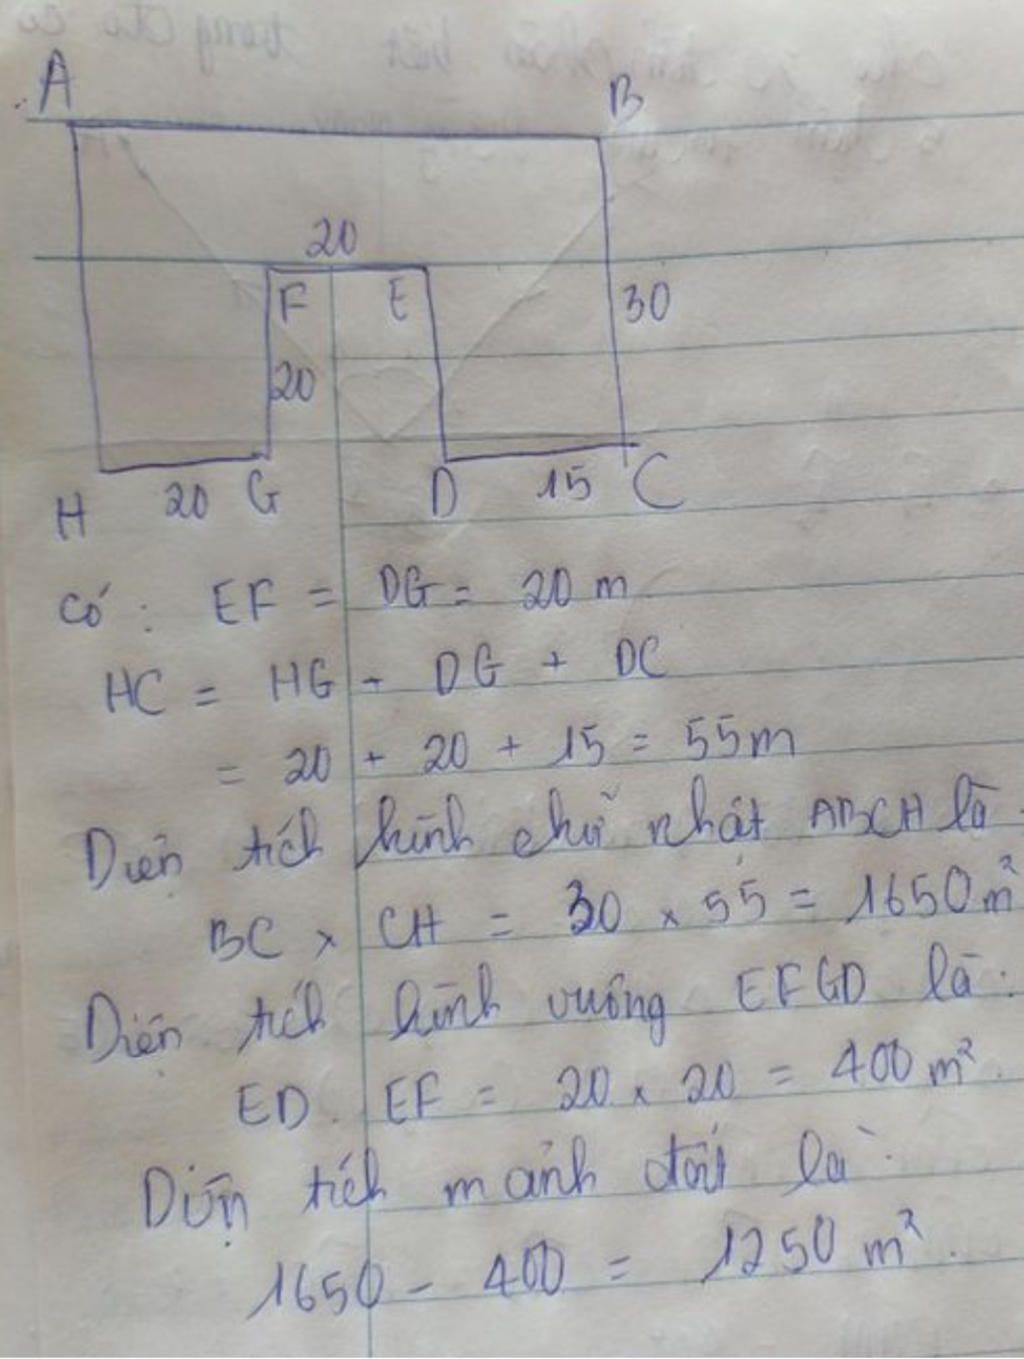 A
B
20
F
E
30
20
H
20
G
D
15
C
có: EF = DG = 20 m
HC = HG + DG + DC
= 20 + 20 + 15 = 55m
Diện tích hình chữ nhật ABCH là:
BC x CH = 30 x 55 = 1650 m²
Diện tích hình vuông EFGD là:
ED . EF = 20 x 20 = 400 m².
Diện tích mảnh đất là:
1650 - 400 = 1250 m².